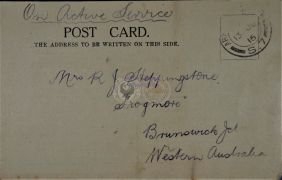 On Active Service
POST CARD.
THE ADDRESS TO BE WRITTEN ON THIS SIDE.
Mrs R J Steppingstone,
"Frogmore"
Brunswick Jct
Western Australia